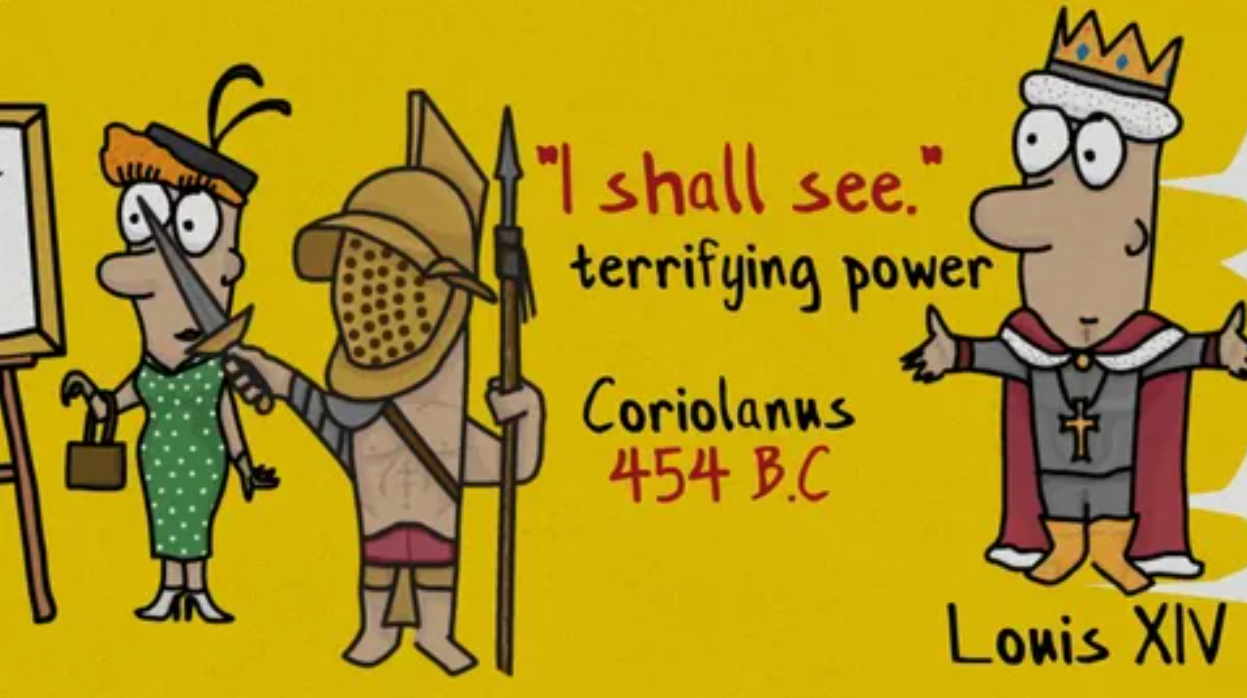 "I shall see."
terrifying power
Coriolanus
454 B.C
Louis XIV